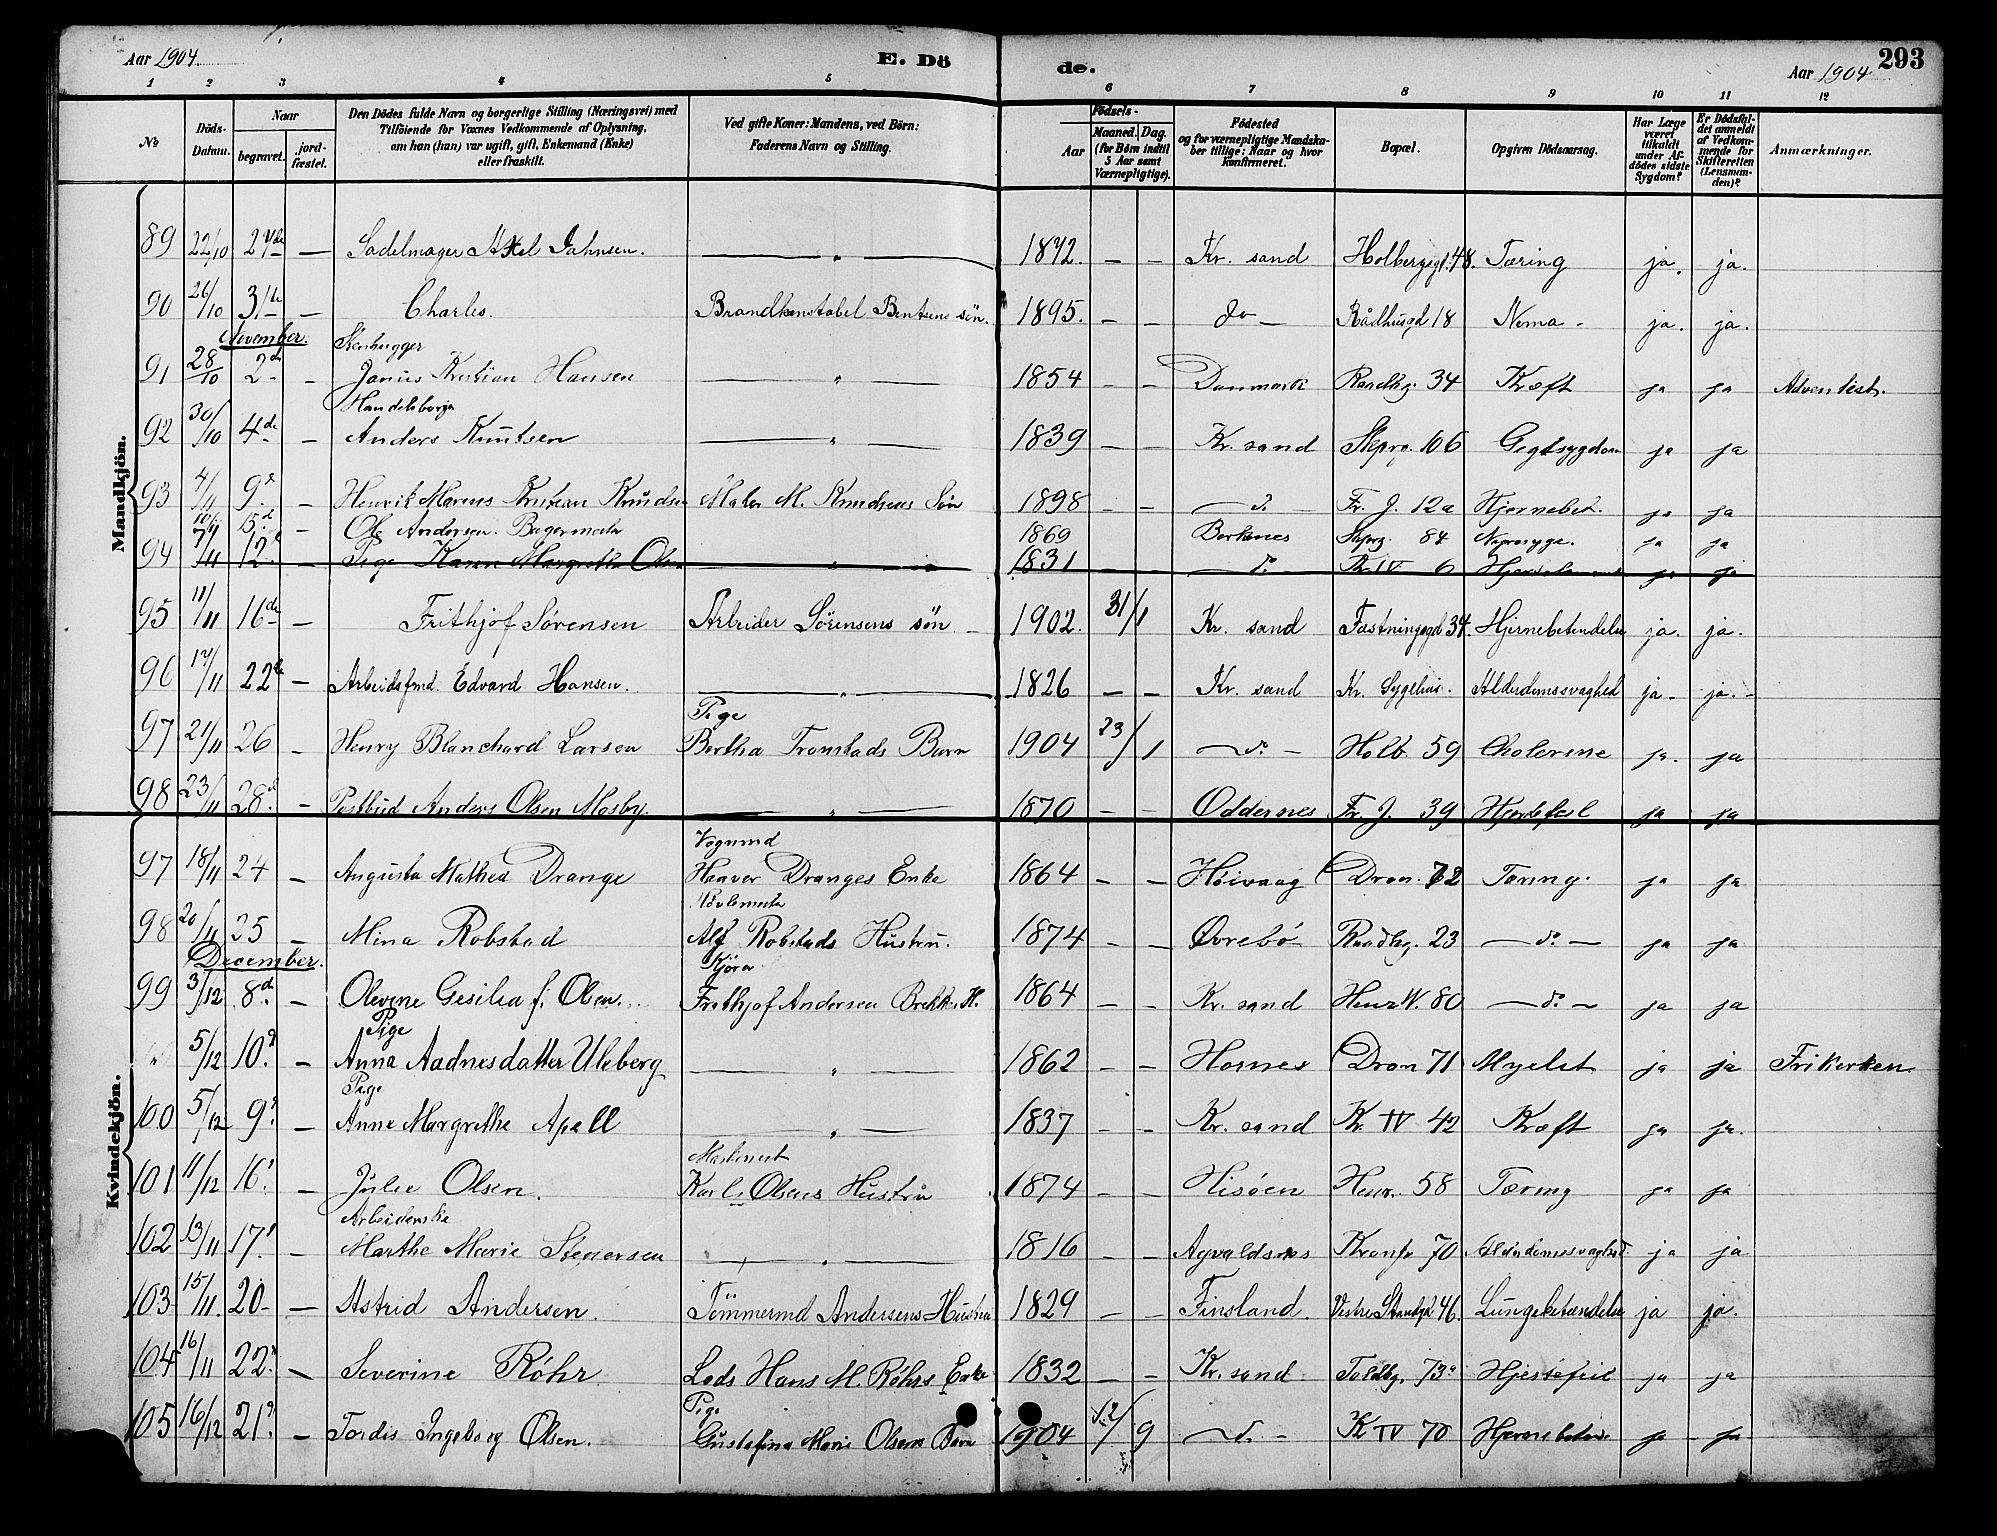 Aar 1904. E. Dö de. Aar 1904 293
1 2 3 4 5 6 7 8 9 10 11 12
No Döds-Datum. Naar begravet. jordfæstet. Den Dödes fulde Navn og borgerlige Stilling (Næringsvei) med Tilföiende for Voxnes Vedkommende af Oplysning, om han (han) var ugift, gift, Enkemand (Enke) eller fraskilt. Ved gifte Koner: Mandens, ved Börn: Faderens Navn og Stilling. Födsels- Aar Maaned. Dag. (for Börn indtil 5 Aar samt Værnepligtige). Födested og for værnepligtige Mandskaber tillige: Naar og hvor konfirmeret. Bopæl. Opgiven Dödsaarsag. Har Læge været tilkaldt under Afdödes sidste Sygdom? Er Dödsfaldet anmeldt af Vedkommende for Skifteretten (Lensmanden)? Anmærkninger.
Mandkjön.
89 22/10 27de — Sadelmager Axel Jahnsen. — " — 1872. — — Kr. sand Holbergsgt. 48. Tæring ja. ja.
90 26/10 31te — Charles. Brandkonstabel Bentsens sön. 1895. — — do — Rådhusgd 18 ja. ja.
November.
91 28/10 2den — Stenhugger
Janus Kristian Hansen — " — 1854 — — Danmark Raadhg. 34 Kræft ja ja Adventist.
Handelsborger
92 30/10 4de — Anders Knutsen — " — 1839 — — Kr. sand Skprg. 106 Gigtsygdom ja ja
93 4/11 9de — Henrik Marius Kristian Knudsen Maler M. Knudsens Sön 1898 — — do. Fr. J. 12a Hjernebet. ja ja
10/11 15de — Ole Andersen. Bagermester 1869 84 ja ja
94 7/11 12 — Pige Karen Margrethe Olsen — " — 1831 — do. Kr IV 6 ja ja
95 11/11 16de — Frithjof Sørensen Arbeider Sörensens sön. — 1902. 31/1 Kr. sand Fæstningsgd 34. Hjernebetendelse ja. ja.
96 17/11 22de — Arbeidsfmd. Edvard Hansen. — " — 1826 — — Kr. sand Kr. Sygehus. Alderdomssvaghed ja. ja.
Pige
97 21/11 26 — Henry Blanchard Larsen Bertha Tromstads Barn 1904 23/1 — do. — Holb. 59 Cholerine ja. ja
98 23/11 28de — Postbud Anders Olsen Mosby. — " — 1870 — — Oddernes Fr. J. 39 ja ja
Kvindekjön.
Vognmd
97 18/11 24 — Augusta Mathea Drange Haaver Dranges Enke 1864 — — Höivaag Dron. 72 Tæring. ja ja
98 20/11 25 — Mina Robstad Alf Robstads Hustru. 1874 — — Øvrebö Raadhg. 23 — do. — ja ja
December.
Kjører
99 3/12 8de — Olevine Gesilia f. Olsen. Frithjof Andersen Brekkes H. 1864 — — Kr. sand Henr W. 80 — do. — ja ja
Pige
" 5/12 10de — Anna Aadnesdatter Uleberg — " — 1862 — — Hornes Dron 71 Myelit ja ja Frikirken.
Pige
100 5/12 9de — Anne Margrethe Apell — " — 1837 — — Kr. sand Kr. IV 42 Kræft ja ja.
Maskinist
101 11/12 16. — Julie Olsen. Karl Olsens Hustru 1874 — — Hisöen Henr. 58 Tæring ja ja
Arbeiderske
102 13/11 17. — Marthe Marie Stenersen — " — 1816 — — Kronpr 70 Alderdomssvaghed ja ja
103 15/11. 20 — Astrid Andersen. Tömmermd Andersens Hustru 1829 — — Finsland. Vestre Strandgd 46. Lungebetændelse ja ja.
104 16/11 22. — Severine Röhr. Lods Hans M. Röhrs Enke 1832 — — Kr. sand Toldbg. 73a Hjertefeil ja ja
Pige
105 16/12 21. — Tordis Ingeborg Olsen. Gustafina Marie Olsens Barn 1904 12/9 — do. — Kr IV 70 ja — ja